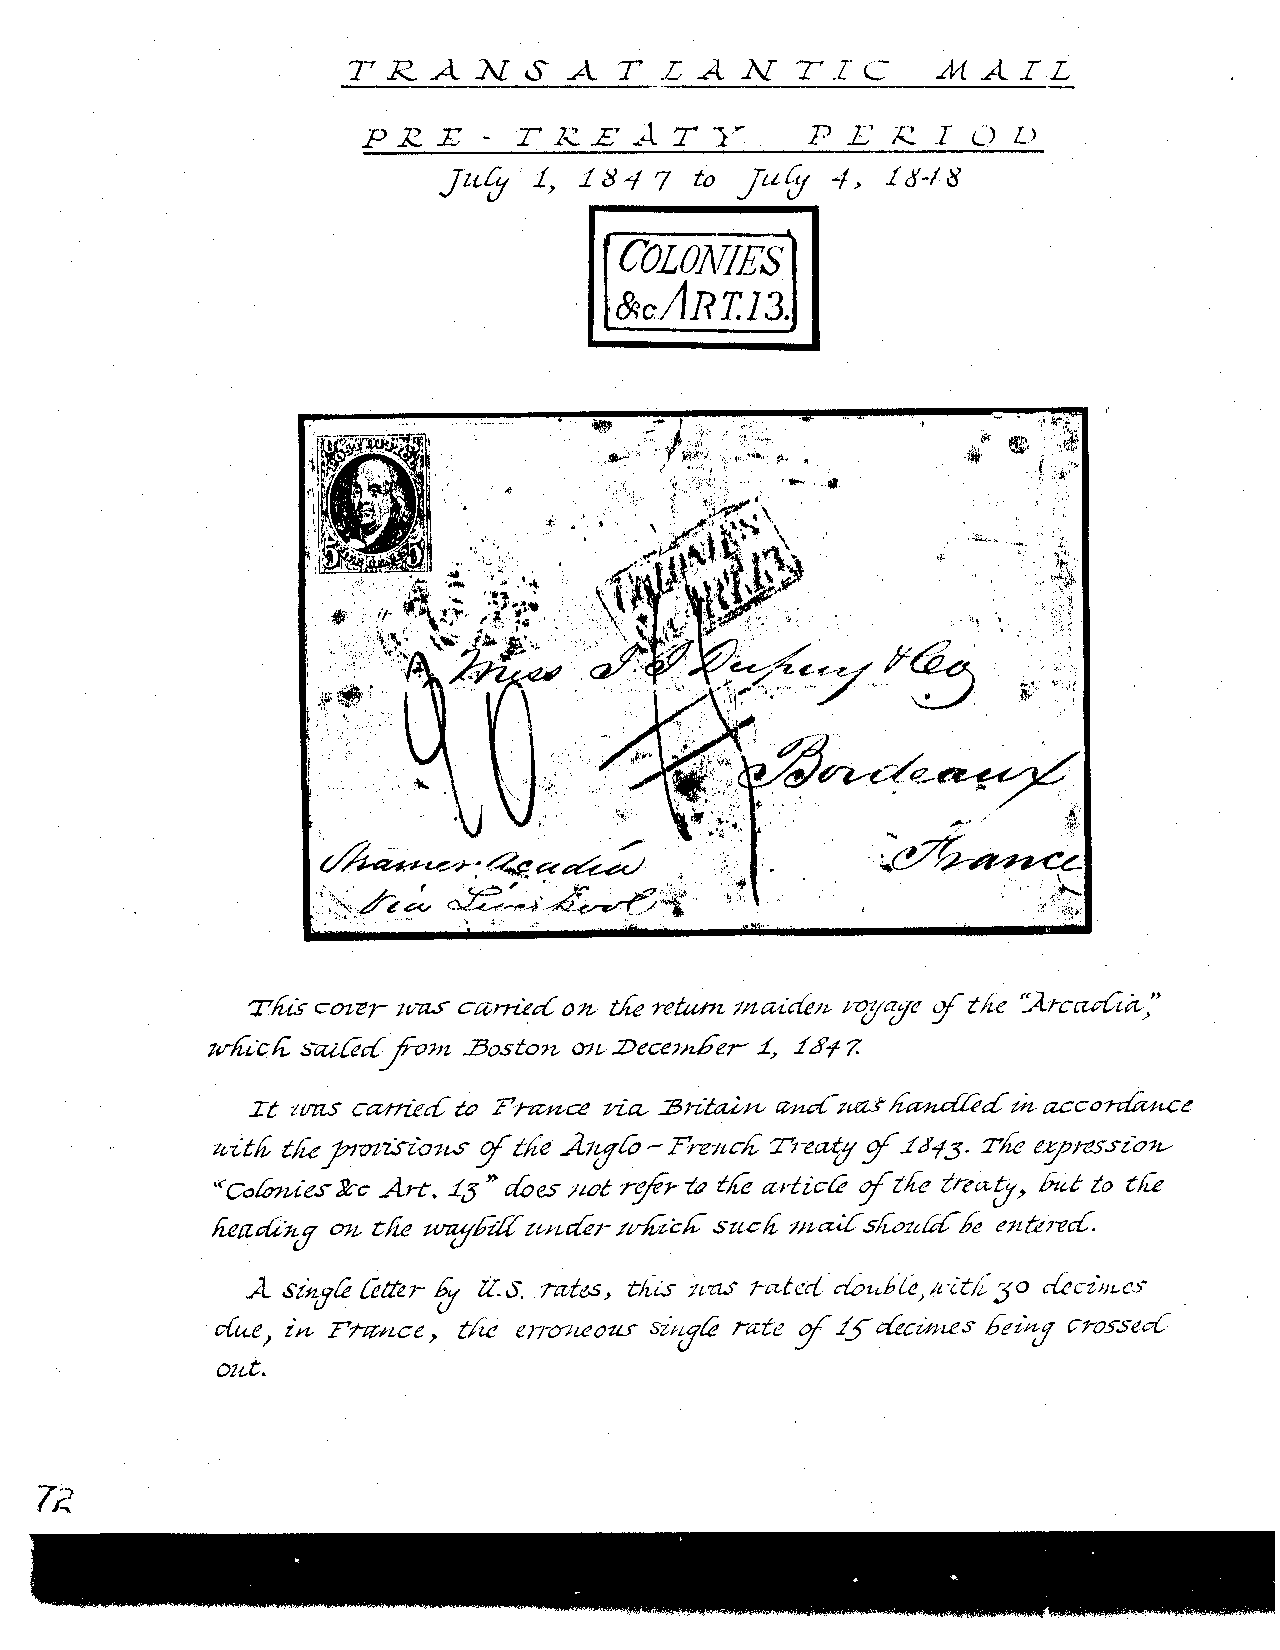 TRANSATLANTIC MAIL
PRE-TREATY PERIOD
July 1, 1847 to July 4, 1848
COLONIES
&c ART. 13.
5 5
COLONIES
ART. 13
Miss J. J. Dupuy & Co
Bordeaux
France
Steamer Acadia
Via Liverpool
This cover was carried on the return maiden voyage of the "Arcadia,"
which sailed from Boston on December 1, 1847.
It was carried to France via Britain and was handled in accordance
with the provisions of the Anglo-French Treaty of 1843. The expression
"Colonies &c Art. 13" does not refer to the article of the treaty, but to the
heading on the waybill under which such mail should be entered.
A single letter by U.S. rates, this was rated double, with 30 decimes
due, in France, the erroneous single rate of 15 decimes being crossed
out.
72